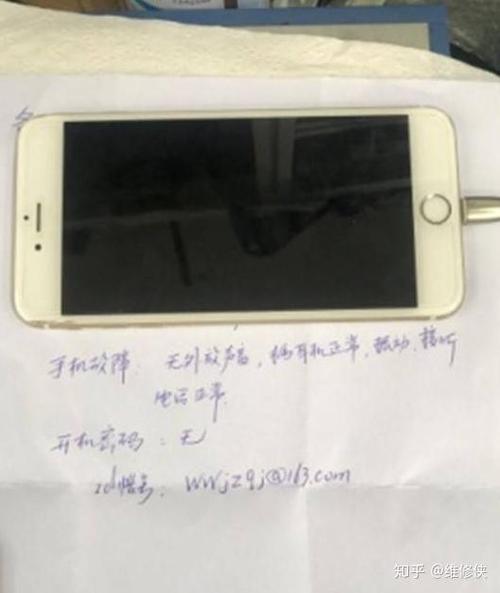 手机故障：无外放声音，插耳机正常，振动、接听
电话正常.
开机密码：无
id账号：wwjzqj@163.com
知乎 @维修侠